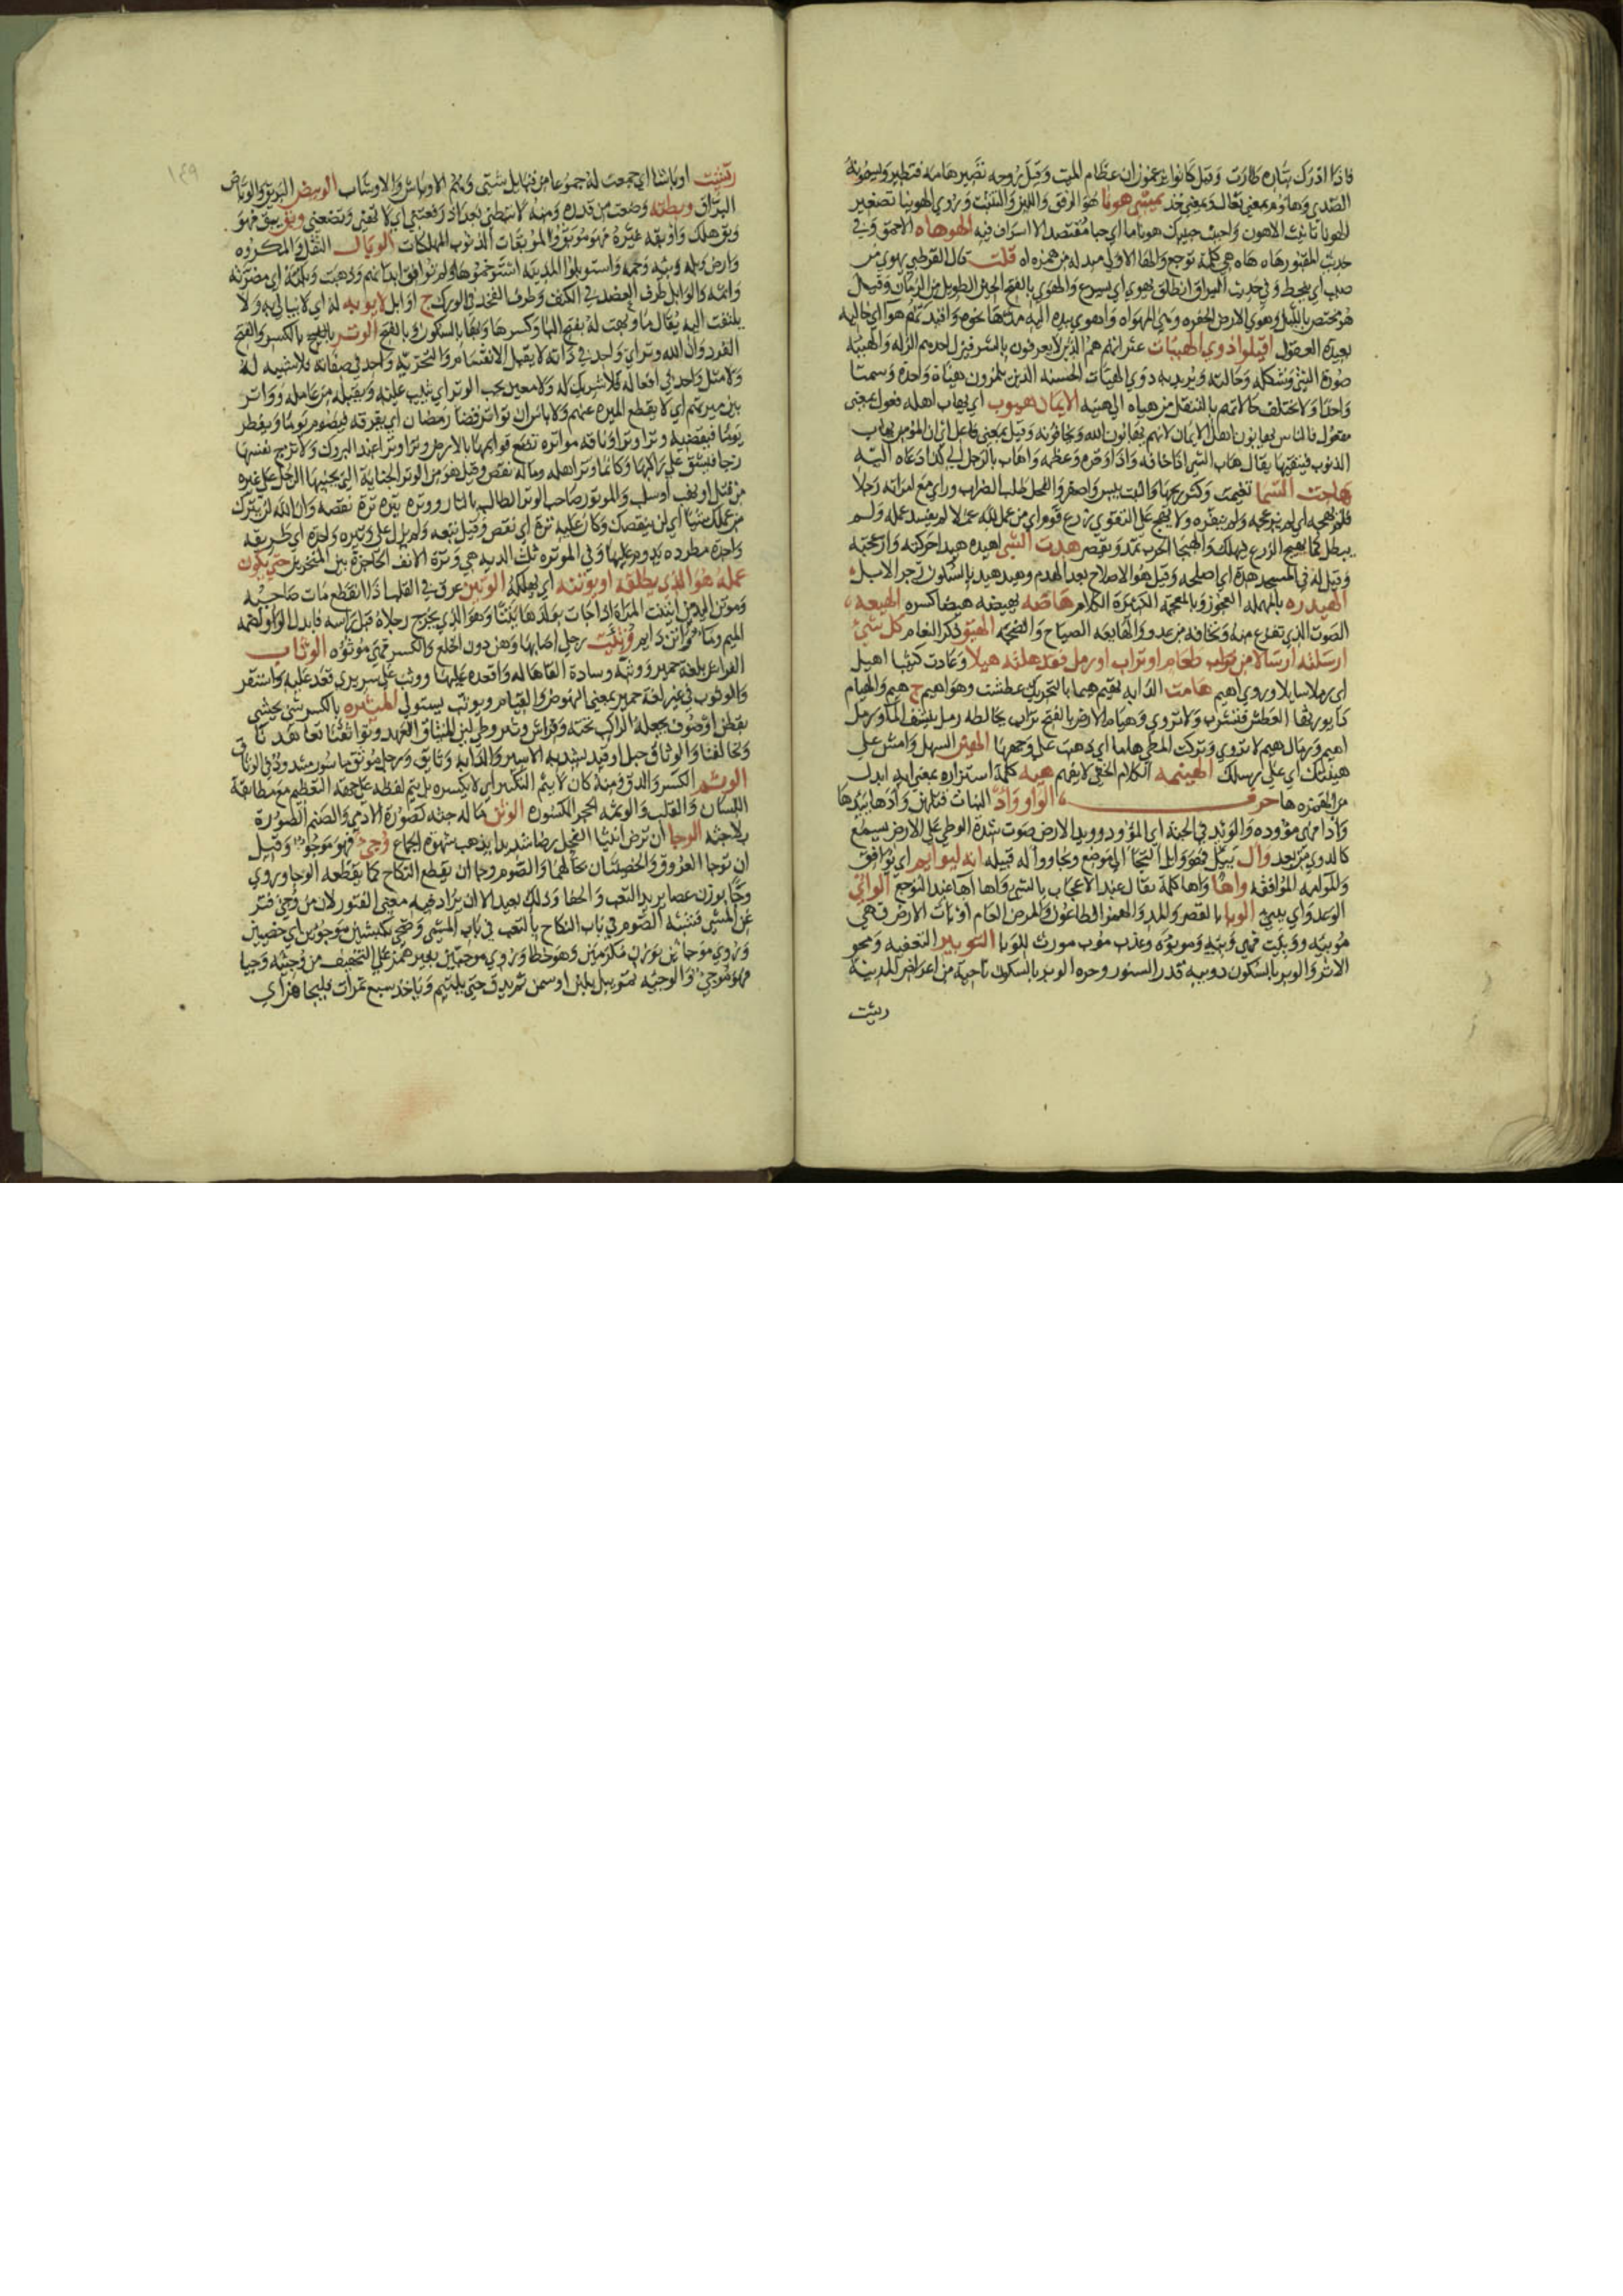 فاذا ادرك بثاره طارت وقيل كانوا يزعمون ان عظام الميت وقيل روحه تصير هامه فتطير ويسمونه
الصدي وهاؤم بمعني تعال وبمعني خذ يمشي هونا هو الرفق واللين والتثبت وروي الهوينا تصغير
الهونا تانيث الاهون واحبب حبيبك هونا ما اي حبا مقتصدا لا اسراف فيه الهوهاه الاحمق وفي
حديث المقبور هاه هاه هي كلمة توجع والها الاولي مبدله من همزه اه قلت قال القرطبي يهوي من
صبب اي ينحط وفي حديث البراق انطلق يهوي اي يسرع والهوي بالفتح الحين الطويل من الزمان وقيل
هو مختص بالليل وهوي الارض الحفره وهي المهواه واهوي بيده اليه مدها نحوه هوا اي خاليه
بعيدة العقول اقيلوا ذوي الهيات عثراتهم هم الذين لا يعرفون بالشر فيزل احدهم الزله والهيئه
صورة الشي وشكله وحالته ويريد به ذوي الهيات الحسنه الذين يلزمون هياة واحده وسمتا
واحدا ولا تختلف حالاتهم بالتنقل من هياه الي هيه الايمان هيوب اي يهاب اهله فعول بمعني
مفعول فالناس يهابون اهل الايمان لانهم يهابون الله ويخافونه وقيل بمعني فاعل اي ان المؤمن يهاب
الذنوب فيتقيها يقال هاب الشي اذا خافه واذا وقره وعظمه واهاب بالرجل الي كذا دعاه اليه
هاجت السما تغيمت وكثر ريحها والنبت يبس واصفر والفحل طلب الضراب وراي مع امراته رجلا
فلم يهجه اي لم يزعجه ولم ينفره ولا يهيج علي التقوي زرع قوم اي من عمل لله عملا لم يفسد عمله ولم
يبطل كما يهيج الزرع فيهلك والهيجا الحرب تمد وتقصر هدت الشي اهيده هيدا حركته وازعجته
وقيل له في المسجد هده اي اصلحه وقيل هو الاصلاح بعد الهدم وهيد هيد بالسكون زجر الابل
الهيدره بالمهمله العجوز وبالمعجمه الكثيرة الكلام هاضه يهيضه هيضا كسره الهيعه
الصوت الذي تفزع منه وتخافه من عدو والهايعه الصياح والضجه الهيق ذكر النعام كل شي
ارسلته ارسالا من طعام او تراب او رمل فقد هلته هيلا وعادت كثيبا اهيل
اي رملا سايلا وروي اهيم هامت الدابه تهيم هيما بالتحريك عطشت وهو اهيم ج هيم والهيام
دا يورثها العطش فتشرب ولا تروي وهيام الارض بالفتح تراب يخالطه رمل ينشف الما ورمل
اهيم ورمال هيم لا تروي وتركت المطي هاما اي ذهبت علي وجهها الهين السهل وامش علي
هينتك اي علي رسلك الهينمه الكلام الخفي لا يفهم هيه كلمة استزاده بمعني ايه ابدل
من الهمزه ها حرف الواو واد البنات قتلهن وادها يئدها
وادا فهي مؤوده والوئيد في الجنة اي المؤود ووييد الارض صوت شدة الوطي علي الارض يسمع
كالدوي من بعد وال يئل فهو وايل التجا الي موضع ونجا ووا له قبيله انه ليوايم اي يوافق
والموامه الموافقه واها واها كلمة تقال عند الاعجاب بالشي واها اها عند التوجع الواي
الوعد واي يئي الوبا بالقصر والمد والهمز الطاعون والمرض العام اوبات الارض فهي
موبيه ووبيت فهي وبيه وموبؤه وعذب موب مورث للوبا التوبير التعفيه ومحو
الاثر والوبر بالسكون دويبه قدر السنور وحره الوبر بالسكون ناحية من اعراض المدينة
وبشت
١٤٩
وبشت اوباشا اي جمعت له جموعا من قبايل شتي وهم الاوباش والاوشاب الوبيص البريق والوباص
البراق وبطته وضعت من قدره ومنه لا تبطني بعد اذ رفعتني اي لا تهني وتضعني وبق يبق فهو
وبق هلك واوبقه غيره فهو موبق والموبقات الذنوب المهلكات الوبال الثقل والمكروه
وارض وبله وبيه وخمه واستوبلوا المدينه استوخموها ولم توافق ابدانهم وذهبت وبلته اي مضرته
واثمه والوابل طرف العضد في الكتف وطرف الفخذ في الورك ج اوابل لا يوبه له اي لا يبالي به ولا
يلتفت اليه يقال ما وبهت له بفتح البا وكسرها وبها بالسكون وبالفتح الوتر بالكسر والفتح
الفرد وان الله وتر اي واحد في ذاته لا يقبل الانقسام والتجزيه واحد في صفاته فلا شبيه له
ولا مثل واحد في افعاله فلا شريك له ولا معين يحب الوتر اي يثيب عليه ويقبله من عامله وواتر
بين ميرتهم اي لا يقطع الميره عنهم ولا باس ان يواتر قضا رمضان اي يفرقه فيصوم يوما ويفطر
يوما فيقضيه وترا وترا وناقه مواتره تضع قوايمها بالارض وترا وترا عند البروك ولا تزج نفسها
زجا فيشق علي راكبها وكانما وتر اهله وماله نقص وقيل هو من الوتر الجناية التي يجنيها الرجل علي غيره
من قتل او نهب او سلب والموتور صاحب الوتر الطالب بالثار ووتره يتره ترة نقصه وان الله لن يترك
من عملك شيا اي لن ينقصك وكان عليه ترة اي نقص وقيل تبعه ولم يزل علي وتيره واحدة اي طريقه
واحدة مطرده يدوم عليها وفي الوتره ثلث الديه هي وترة الانف الحاجزة بين المنخرين حتي يكون
عمله هو الذي يطلقه او يوتنه اي يهلكه الوتين عرق في القلب اذا انقطع مات صاحبه
وموتن اليد من ايتنت المراة اذا جات بولدها يتنا وهو الذي يخرج رجلاه قبل راسه فابدل الواو لضمه
الميم وما واتن دايم وثئت رجلي اصابها وهن دون الخلع والكسر فهي موثوه الوثاب
الفراش بلغة حمير ووثبه وسادة القاها له واقعده عليها ووثب علي سريري قعد عليه واستقر
والوثوب في غير لغة حمير بمعني النهوض والقيام ويوثب يستولي الميثره بالكسر شي يحشي
بقطن او صوف يجعله الراكب تحته وفراش وثير وطي لين الميثاق العهد وتواثقنا تعاهدنا
وتحالفنا والوثاق حبل او قيد يشد به الاسير والدابه وثايق ورجل موثق ماسور مشدود في الوثاق
الوثم الكسر والدق ومنه كان لا يثم التكبير اي لا يكسره بل يتم لفظه علي جهة التعظيم مع مطابقة
اللسان والقلب والوثيمه الحجر المكسوره الوثن ما له جثه كصورة الادمي والصنم الصورة
بلا جثه الوجا ان ترض انثيا الفحل رضا شديدا يذهب شهوة الجماع وجئ فهو موجو وقيل
ان توجا العروق والخصيتان بحالهما والصوم وجا ان يقطع النكاح كما يقطعه الوجا وروي
وجا بوزن عصا يريد التعب والحفا وذلك بعيد الا ان يراد فيه معني الفتور لان من وجي فتر
عن المشي فشبه الصوم في باب النكاح بالتعب في باب المشي وضحي بكبشين موجوين اي خصيين
وروي موجاين بوزن مكرمين وهو خطا وروي موجيين بغير همز علي التخفيف من وجيته وجيا
فهو موجي والوجيه تمر يبل بلبن او سمن حتي يلتيم وياخذ سبع تمرات فليجاهن اي